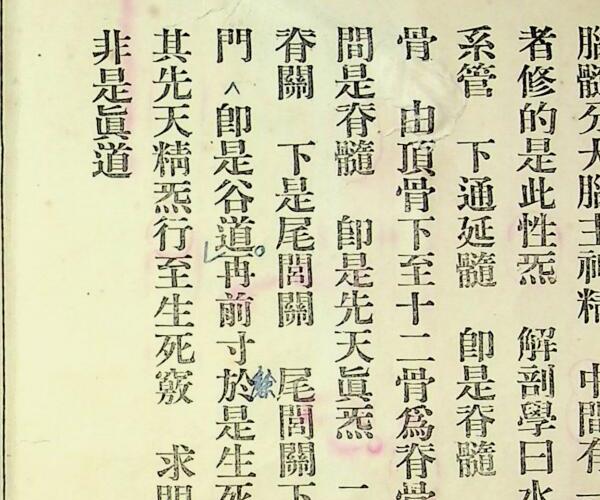 腦髓分大腦主神精　中間有一
者修的是此性炁　解剖學曰水
系管　下通延髓　卽是脊髓
骨　由頂骨下至十二骨爲脊骨
間是脊髓　卽是先天眞炁　二
脊關　下是尾閭關　尾閭關下
門^卽是谷道再前寸餘於是生死
其先天精炁行至生死竅　求明
非是眞道